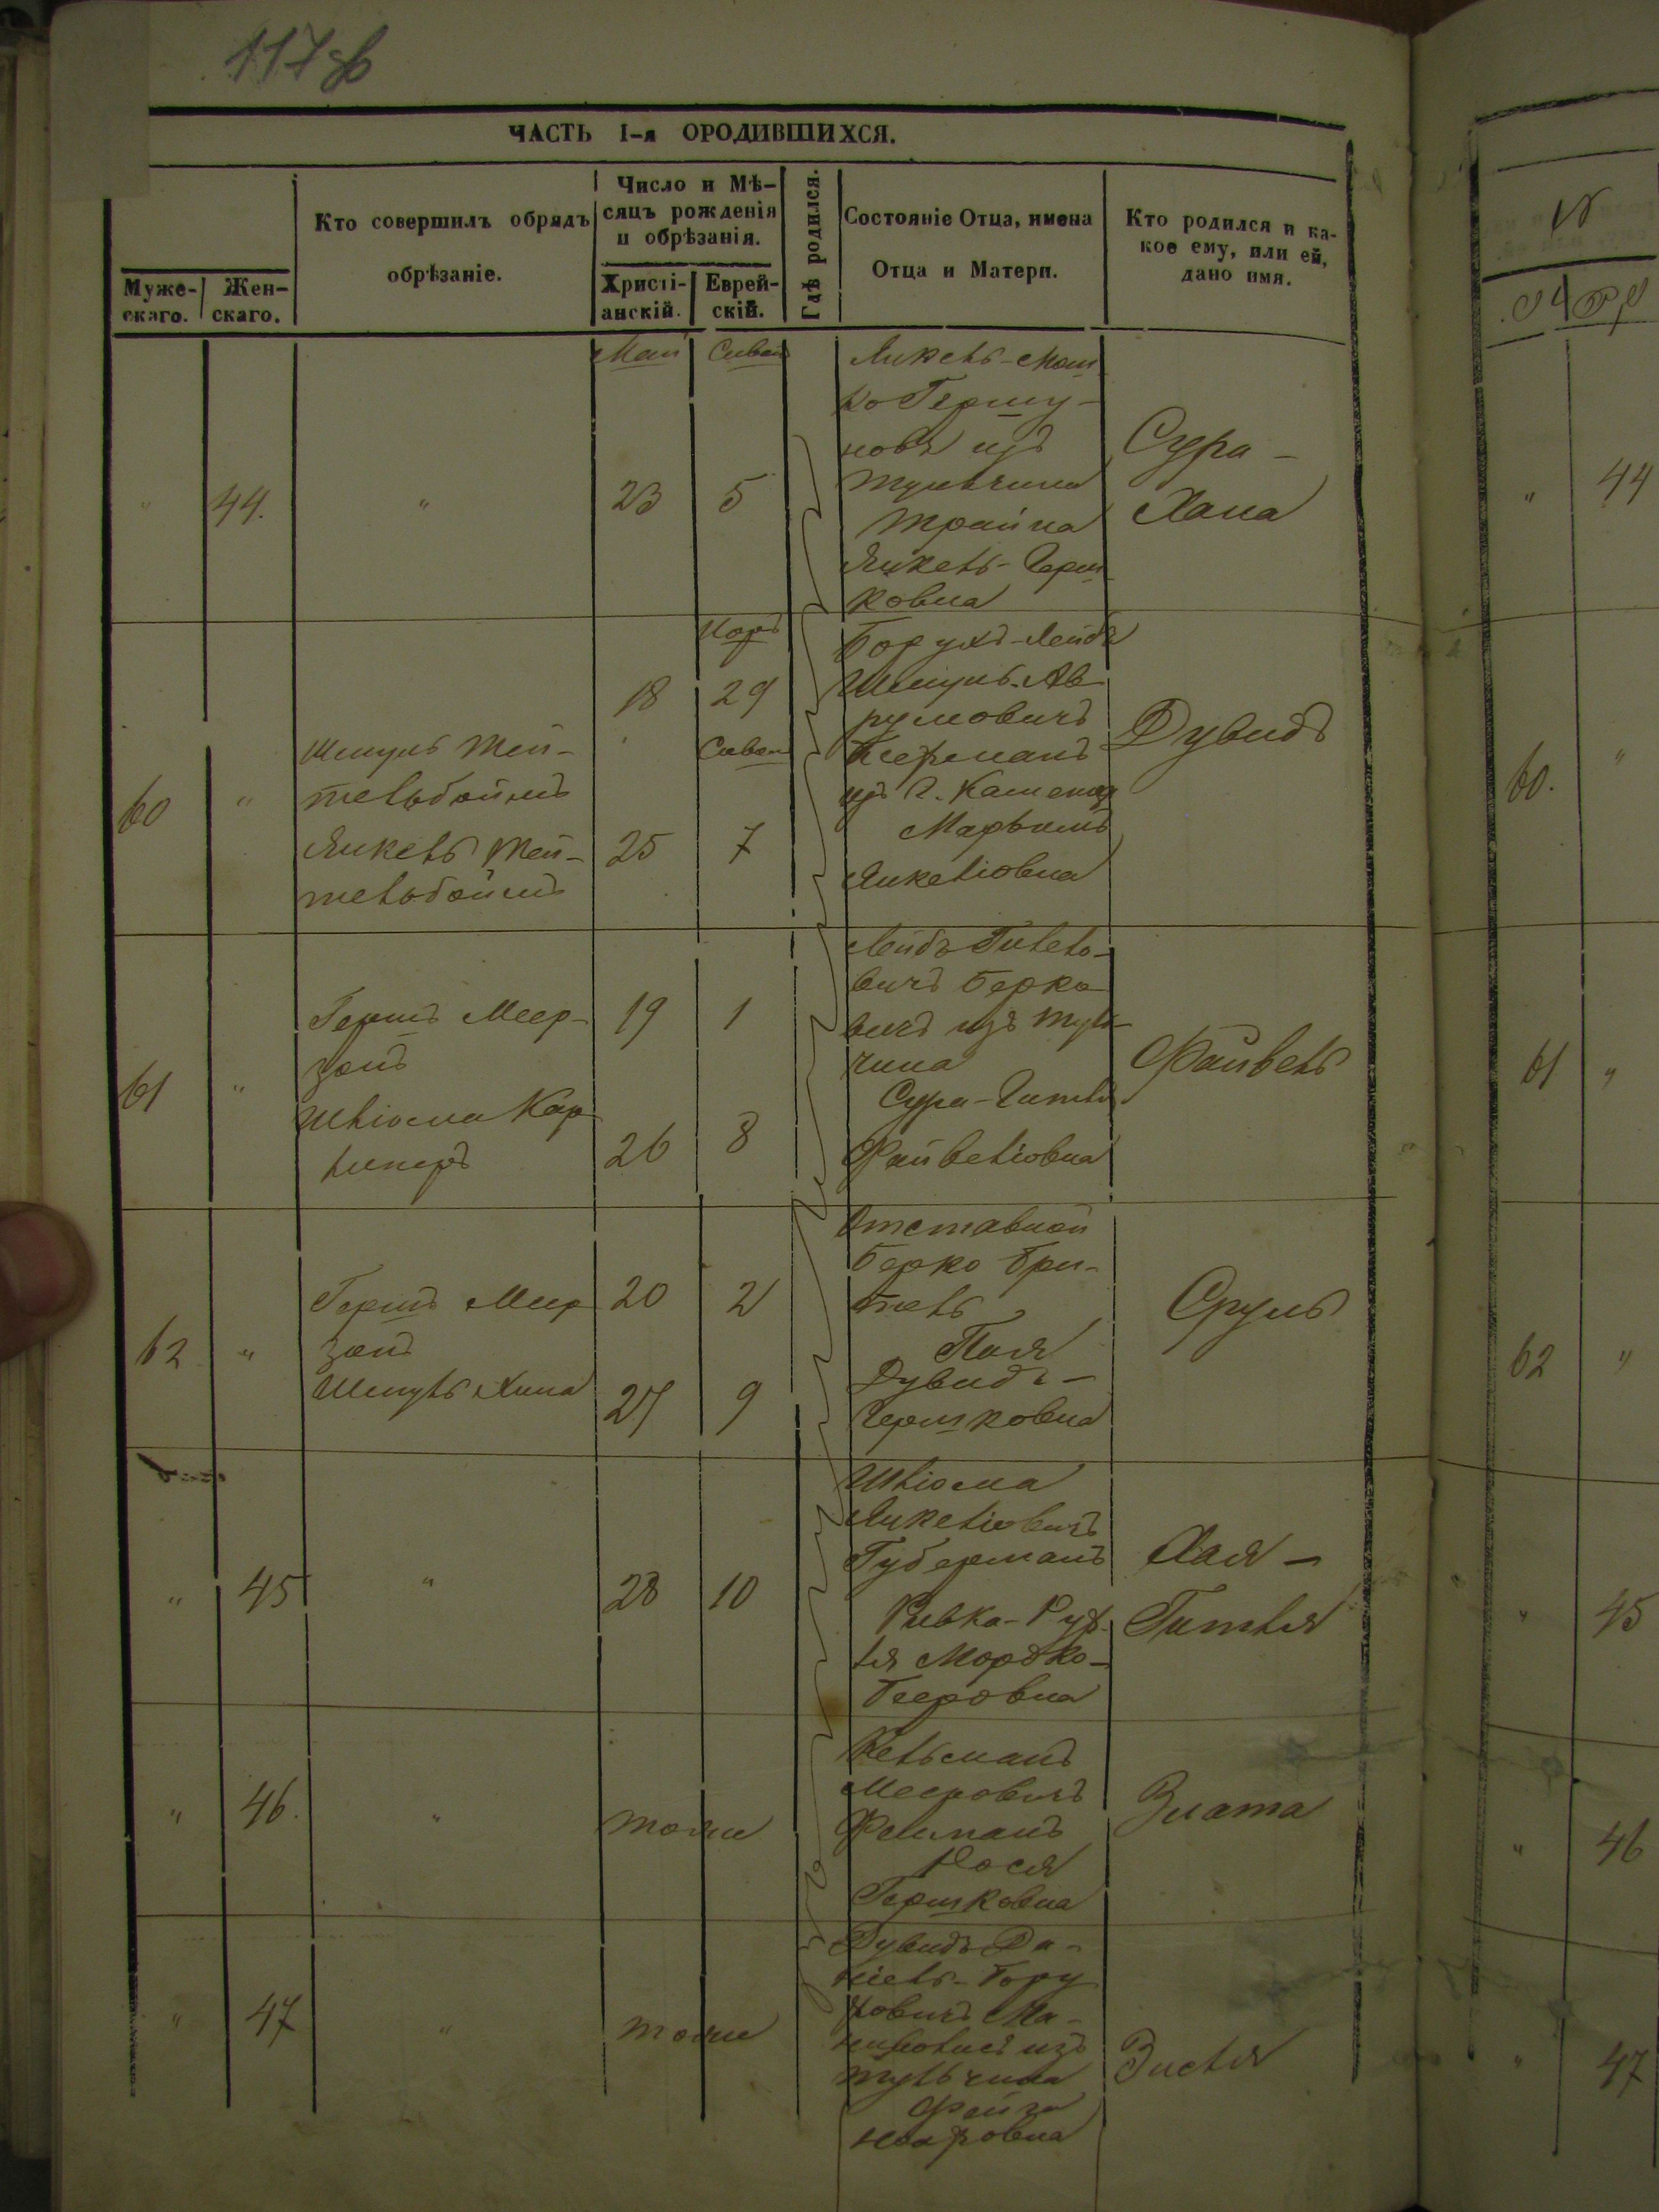 117 об
ЧАСТЬ I-я ОРОДИВШИХСЯ.
Муже-
скаго.
Жен-
скаго.
Кто совершилъ обрядъ
обрѣзаніе.
Число и Мѣ-
сяцъ рожденія
и обрѣзанія.
Христі-
анскій.
Еврей-
скій.
Гдѣ родился.
Состояніе Отца, имена
Отца и Матери.
Кто родился и ка-
кое ему, или ей,
дано имя.
Май Сиван
" 44. " 23 5
Янкель-Мош
ко Гершу-
новъ изъ
Тульчина
Трайна
Янкель-Герш
ковна
Сура-
Хана
60 "
Шмуль Тей-
тельбоймъ
Янкель Тей-
тельбоймъ
Іяръ
18 29
Сиван
25 7
Борухъ-Лейбъ
Шмуль-Ав
румовичъ
изъ г. Каменца
Марьямъ
Янкеліовна
Дувидъ
61 "
Гершъ Меер-
зонъ
Шліома Кар
19 1
26 8
Лейбъ
вичъ Берко
вичъ изъ Туль-
чина
Сура-Гитля
Файвеліовна
Файвель
62 "
Гершъ Меер
зонъ
Шмуль
20 2
27 9
Отставной
Берко
Поля
Дувидъ-
Гершковна
Сруль
" 45 " 28 10
Шліома
Янкеліовичъ
Губерманъ
Ривка-Рух-
ля Мордко-
Бееровна
Хая-
Гитля
" 46. " тоже
Кельманъ
Мееровичъ
Фельманъ
Нося
Гершковна
Злата
" 47 " тоже
Дувидъ Да-
ніель-Бору
ховичъ Ма-
изъ
Тульчина
Фейга
Зисля
" 44
60. "
61 "
62 "
" 45
" 46
" 47